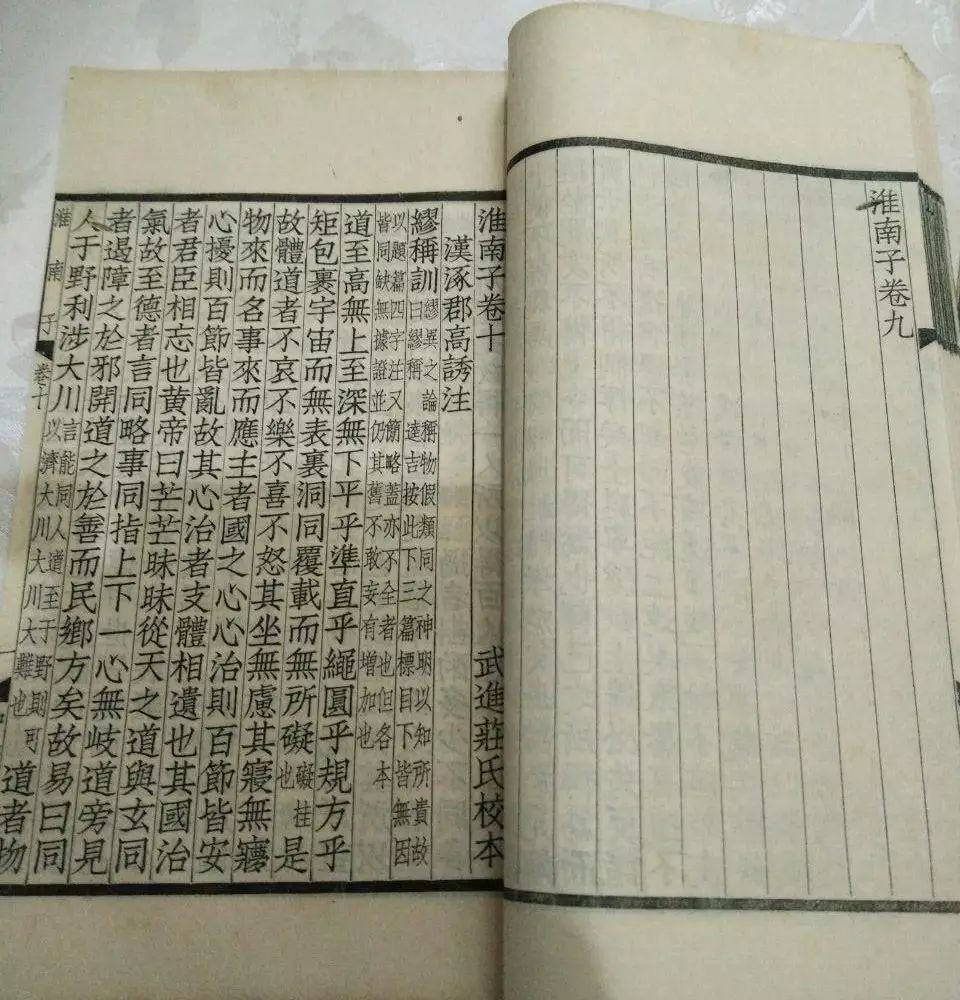 淮南子卷九
淮南子卷十 武進莊氏校本
漢涿郡高誘注
繆稱訓 繆異之論稱物假類同之神明以知所貴故
曰繆稱逵吉按此下三篇標目下皆無因
以題篇四字注又簡略蓋亦不全者也但各本
皆同缺無據證並仍其舊不敢妄有增加也
道至高無上至深無下平乎準直乎繩圓乎規方乎
矩包裹宇宙而無表裏洞同覆載而無所礙礙挂也是
故體道者不哀不樂不喜不怒其坐無慮其寢無㝱
物來而名事來而應主者國之心心治則百節皆安
心擾則百節皆亂故其心治者支體相遺也其國治
者君臣相忘也黄帝曰芒芒昧昧從天之道與玄同
氣故至德者言同略事同指上下一心無岐道旁見
者遏障之於邪開道之於善而民鄉方矣故易曰同
人于野利涉大川言能同人道至于野則可以濟大川大川大難也道者物
淮南子 卷十